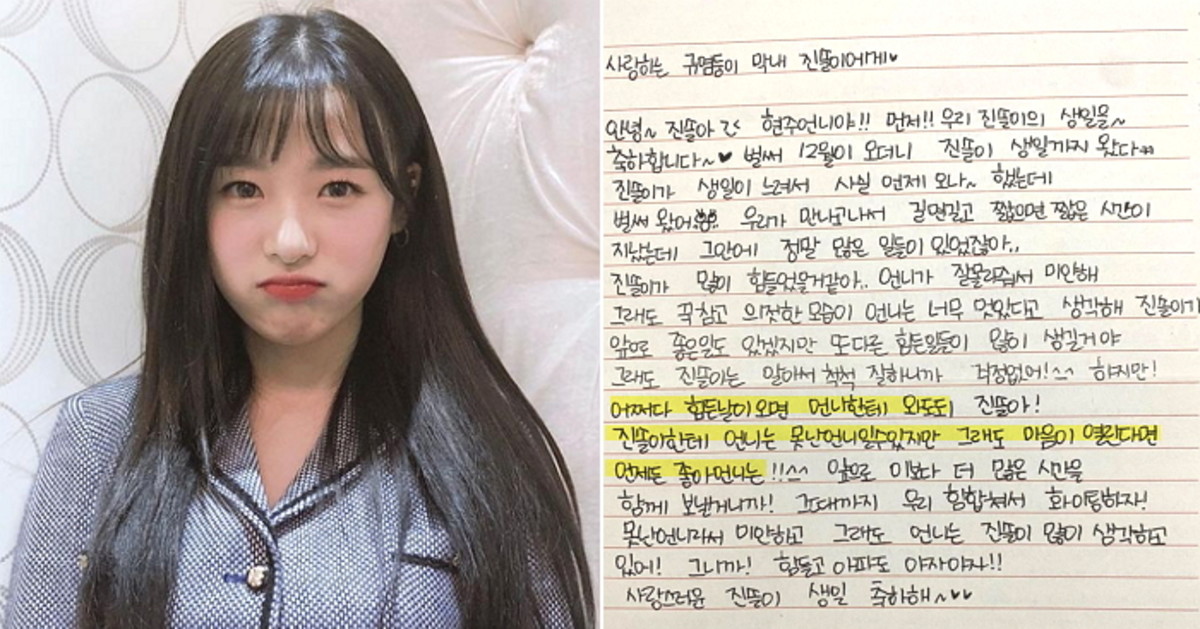 사랑하는 귀염둥이 막내 진똘이에게♥
안녕~ 진똘아 현주언니야!! 먼저!! 우리 진똘이의 생일을~
축하합니다~♥ 벌써 12월이 오더니 진똘이 생일까지 왔다
진똘이가 생일이 느려서 사실 언제 오나~ 했는데
벌써 왔어 우리가 만나고나서 길면길고 짧으면 짧은 시간이
지났는데 그안에 정말 많은 일들이 있었잖아..
진똘이가 많이 힘들었을거같아.. 언니가 잘몰라줘서 미안해
그래도 꾹참고 의젓한 모습이 언니는 너무 멋있다고 생각해 진솔이가
앞으로 좋은일도 있겠지만 또다른 힘든일들이 많이 생길거야
그래도 진똘아는 알아서 척척 잘하니까 걱정없어!^^ 하지만!
어쩌다 힘든날이오면 언니한테 와도돼 진똘아!
진똘이한테 언니는 못난언니일수있지만 그래도 마음이 열린다면
언제든 좋아언니는!!^^ 앞으로 이보다 더 많은 시간을
함께 보낼거니까! 그때까지 우리 힘합쳐서 화이팅하자!
못난언니라서 미안하고 그래도 언니는 진똘이 많이 생각하고
있어! 그니까! 힘들고 아파도 아자아자!!
사랑스러운 진똘이 생일 축하해~♥♥